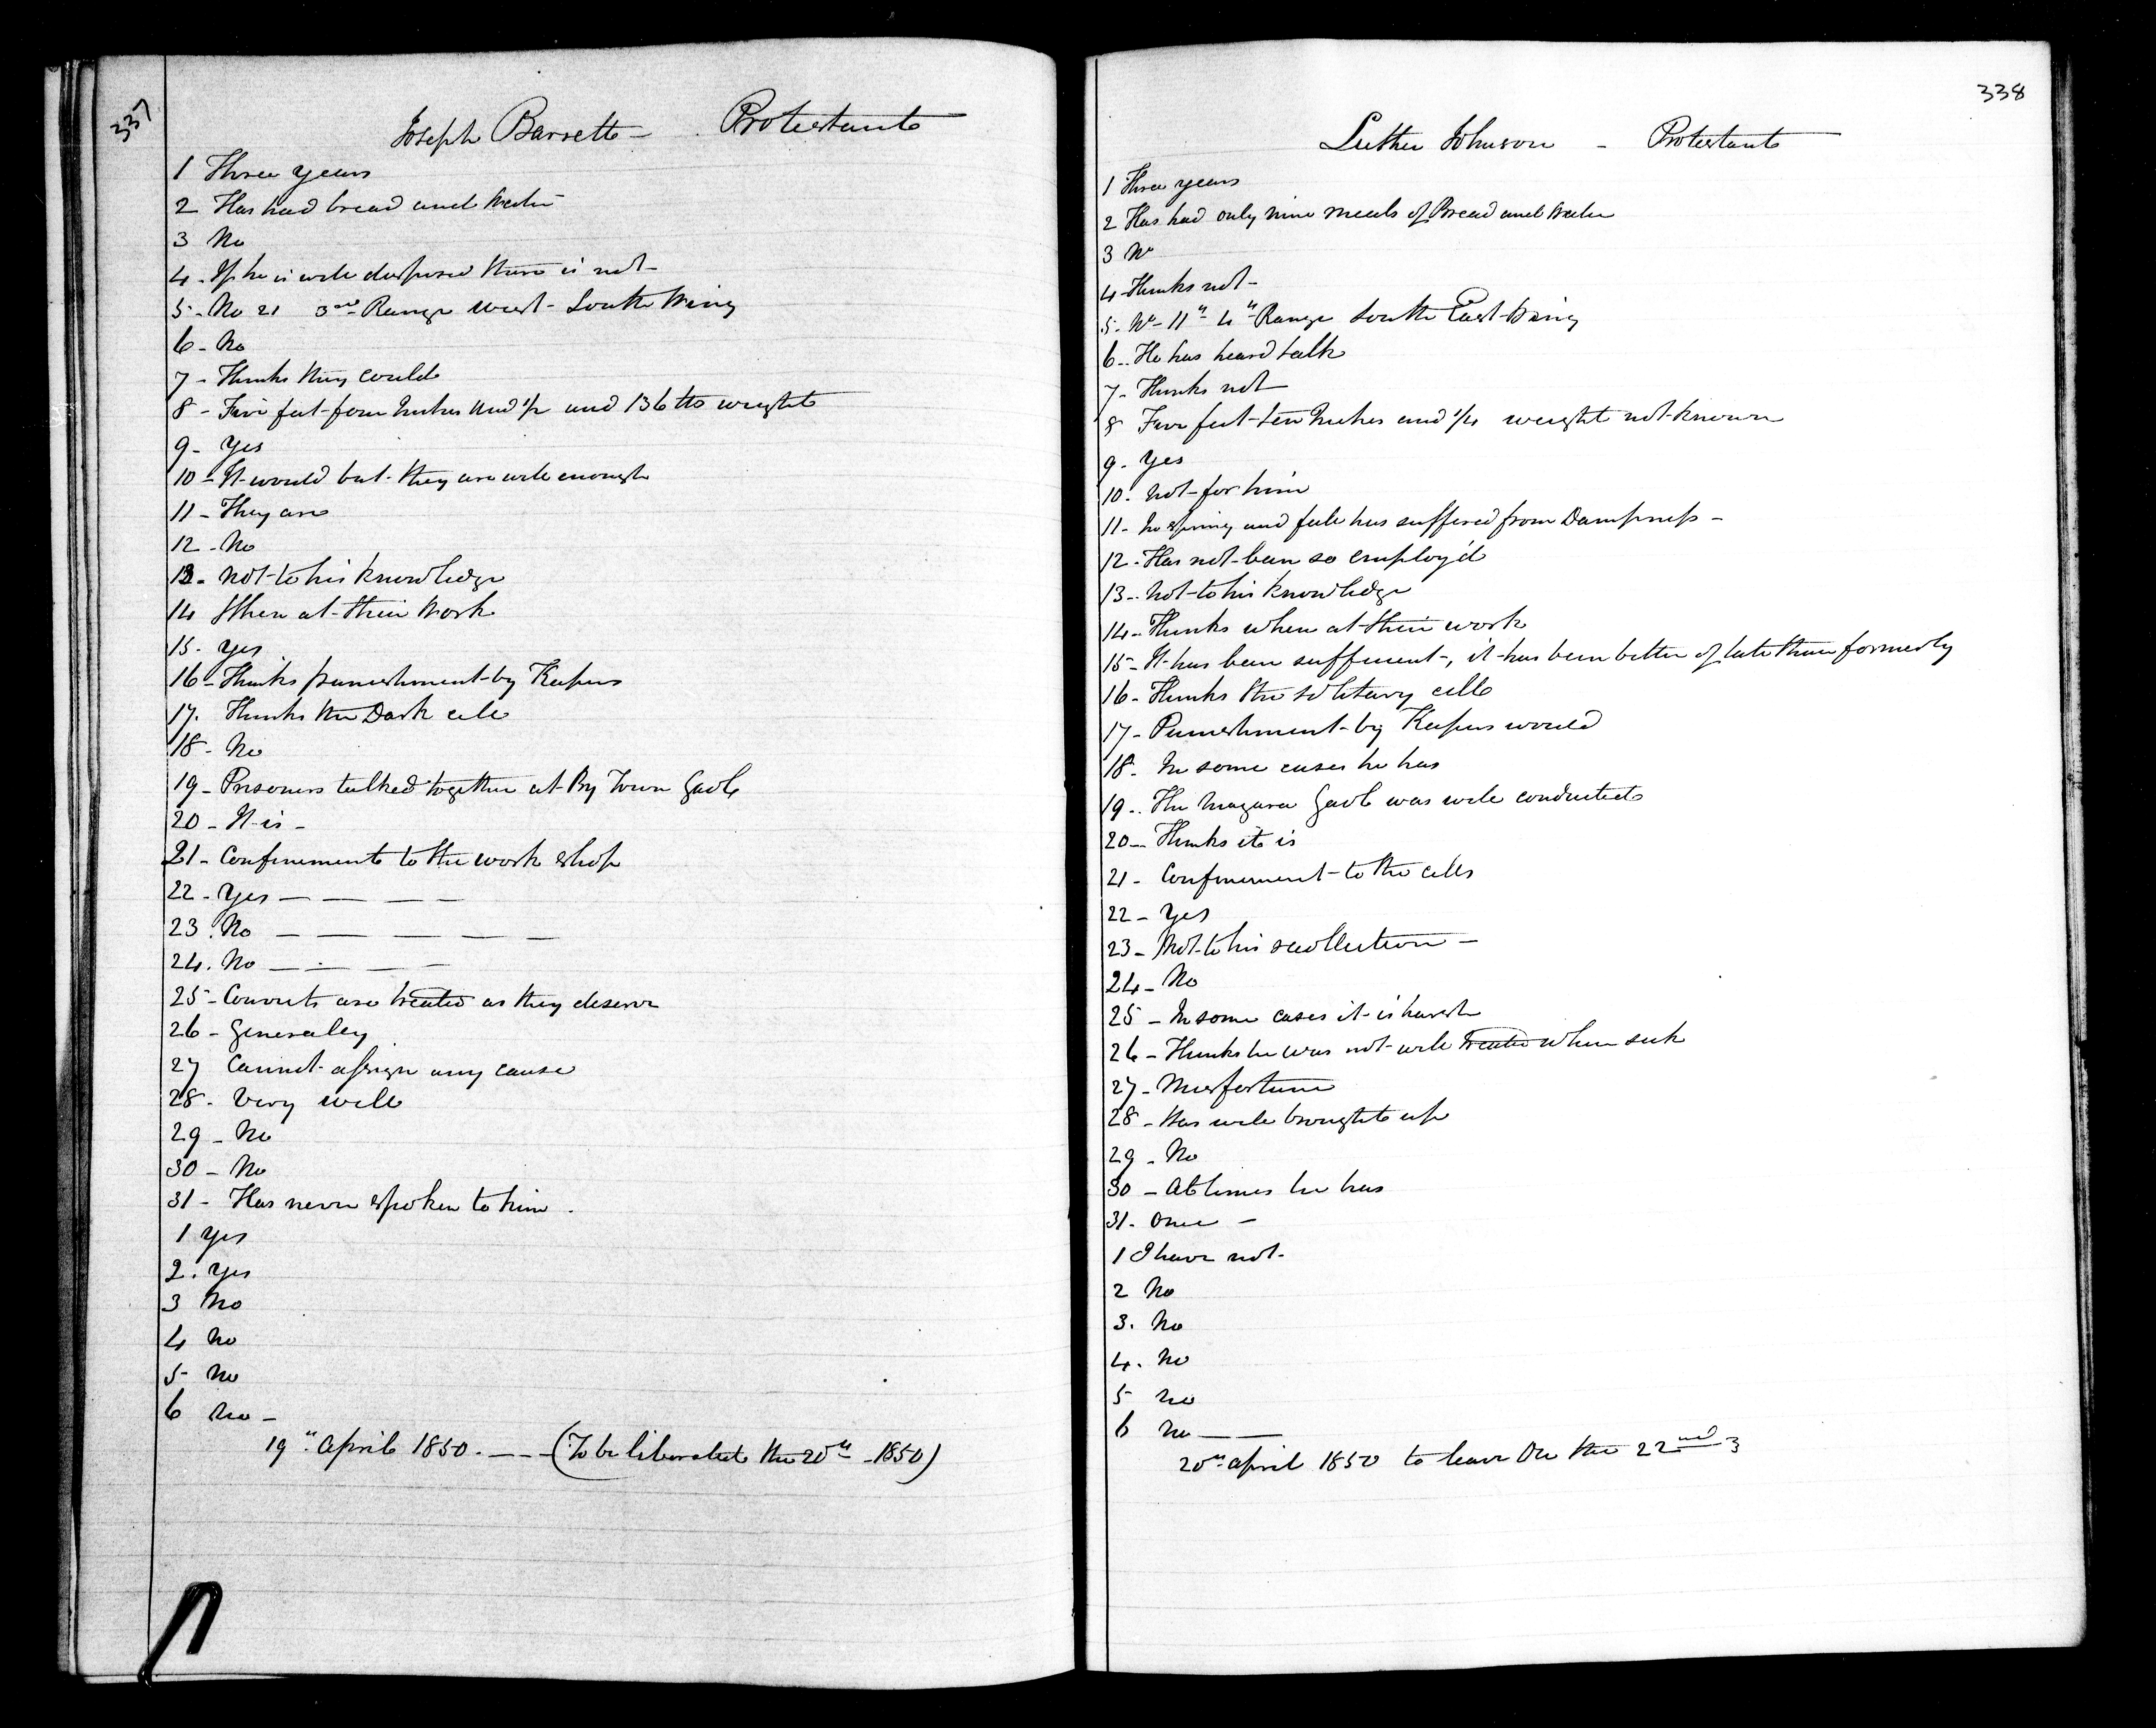 337
Joseph Barrett - Protestant
1 Three years
2 Has had bread and Water
3 No
4 - If he is well disposed there is not -
5 - No 21 3rd Range West - South Wing
6 - No
7 - Thinks they could
8 - Five feet four Inches and 1/2 and 136 lbs weight
9 - Yes
10 - It would but they are well enough
11 - They are
12 - No
13 - Not to his knowledge
14 When at their Work
15 - Yes
16 - Thinks punishment by Keepers
17. Thinks the Dark cell
18 - No
19 - Prisoners talked together at By Town Gaol
20 - It is -
21 - Confinement to the work shop
22 - Yes — — — —
23. No — — — — —
24. No — — — —
25 - Convicts are treated as they deserve
26 - Generaley
27 Cannot assign any cause
28 - Very well
29 - No
30 - No
31 - Has never spoken to him.
1 Yes
2. Yes
3 No
4 No
5 - No
6 No -
19th April 1850. - - - (To be liberated the 20th - 1850)
338
Luther Johnson - Protestant
1 Three years
2 Has had only nine meals of Bread and Water
3 No
4 Thinks not -
5 - No - 11th 4th Range South East Wing
6 - He has heard talk
7 - Thinks not
8 Five feet ten Inches and 1/4 weight not known
9 - Yes
10 - Not for him
11 - In spring and fall has suffered from Dampness -
12 - Has not been so employ'd
13 - Not to his knowledge
14 - Thinks when at their work
15 - It has been sufficient -, it has been better of late than formerly
16 - Thinks the solitary cell
17 - Punishment by Keepers would
18 - In some cases he has
19 - The Niagara Gaol was well conducted
20 - Thinks it is
21 - Confinement to the cells
22 - Yes
23 - Not to his recollection -
24 - No
25 - In some cases it is harsh
26 - Thinks he was not well treated when sick
27 - Misfortune
28 - Was well brought up
29 - No
30 - At times he has
31 - Once -
1 I have not -
2 No
3. No
4. No
5 No
6 No — —
20th April 1850 to leave on the 22nd